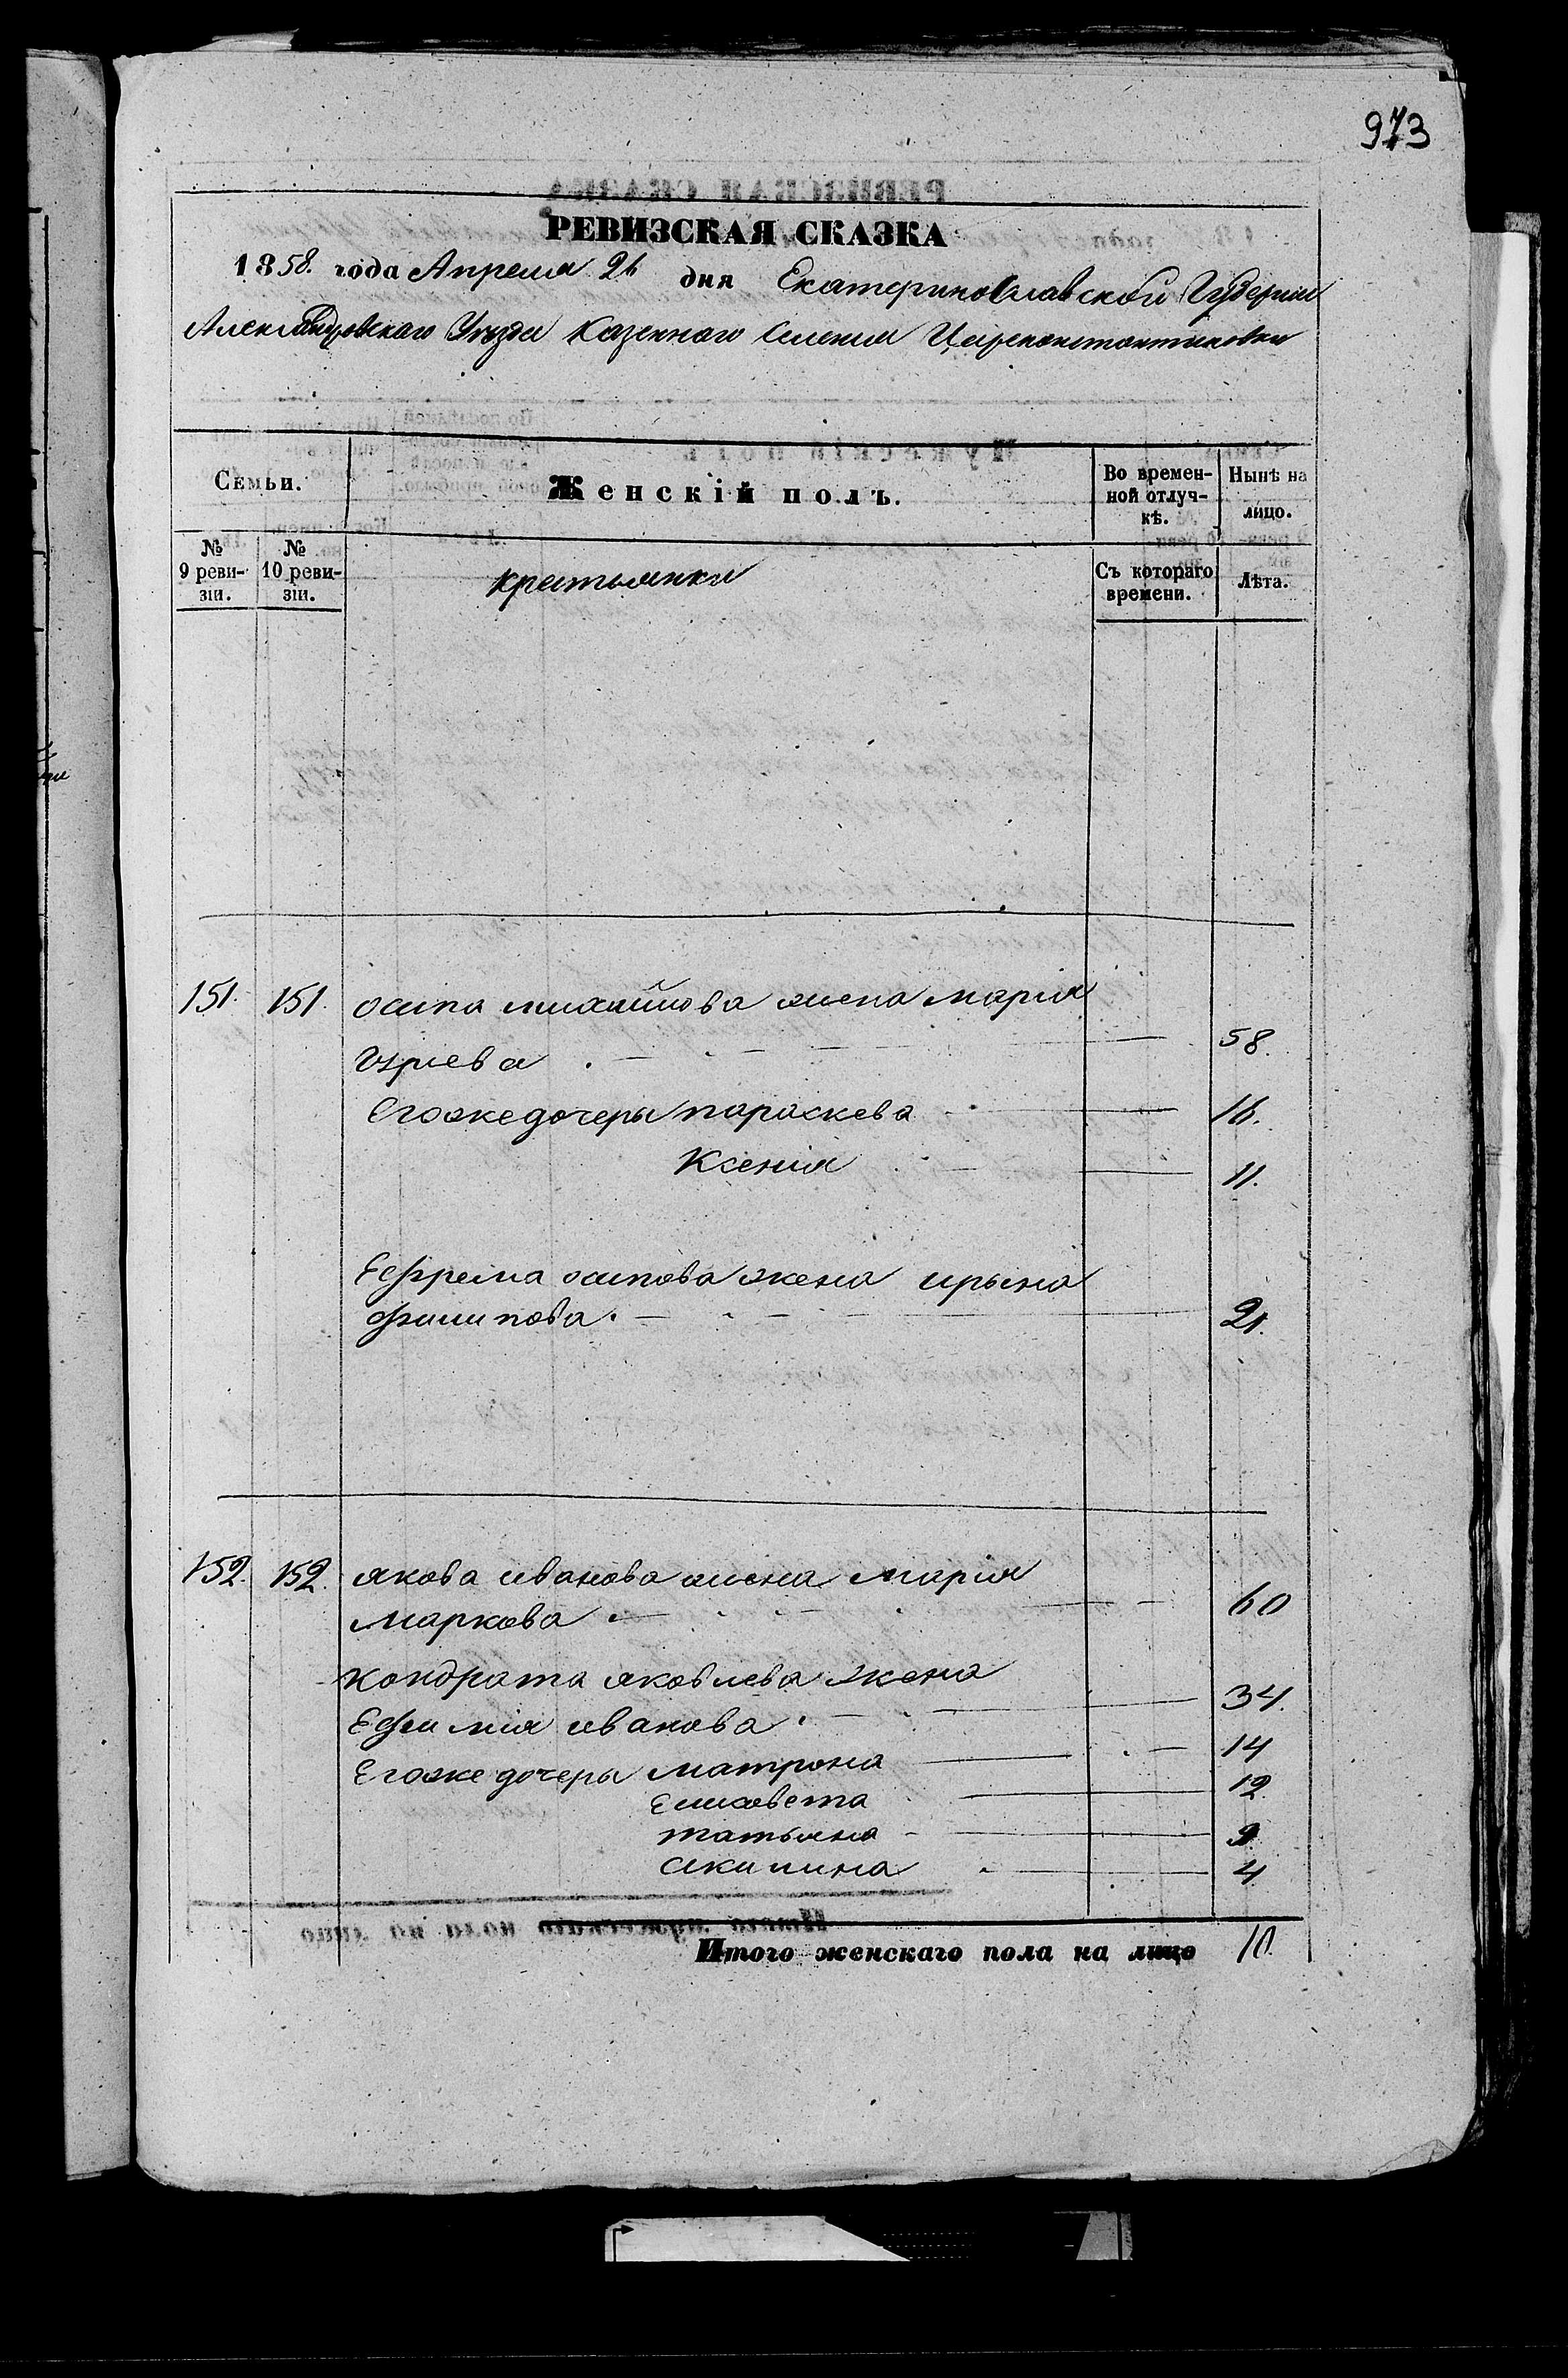 973
РЕВИЗСКАЯ СКАЗКА
1858. года Апреля 26 дня Екатеринославской Губернии
Александровскаго Уезда Казеннаго Селения Цареконстантиновки
Семьи. Женскій полъ. Во времен-ной отлуч-кѣ. Нынѣ на лицо.
№ 9 реви-зіи. № 10 реви-зіи. крестьянки Съ котораго времени. Лѣта.
151. 151. осипа михайлова жена мария
Юрьева 58.
Егоже дочеры параскева 16.
Ксения 11.
Ефрема осипова жена ирына
филипова 21.
152. 152. якова иванова жена мария
маркова 60
кондрата яковлева жена
Ефимия иванова 34.
Егоже дочеры матрона 14
Елисовета 12.
татьяна 9
акилина 4
Итого женскаго пола на лицо 10.